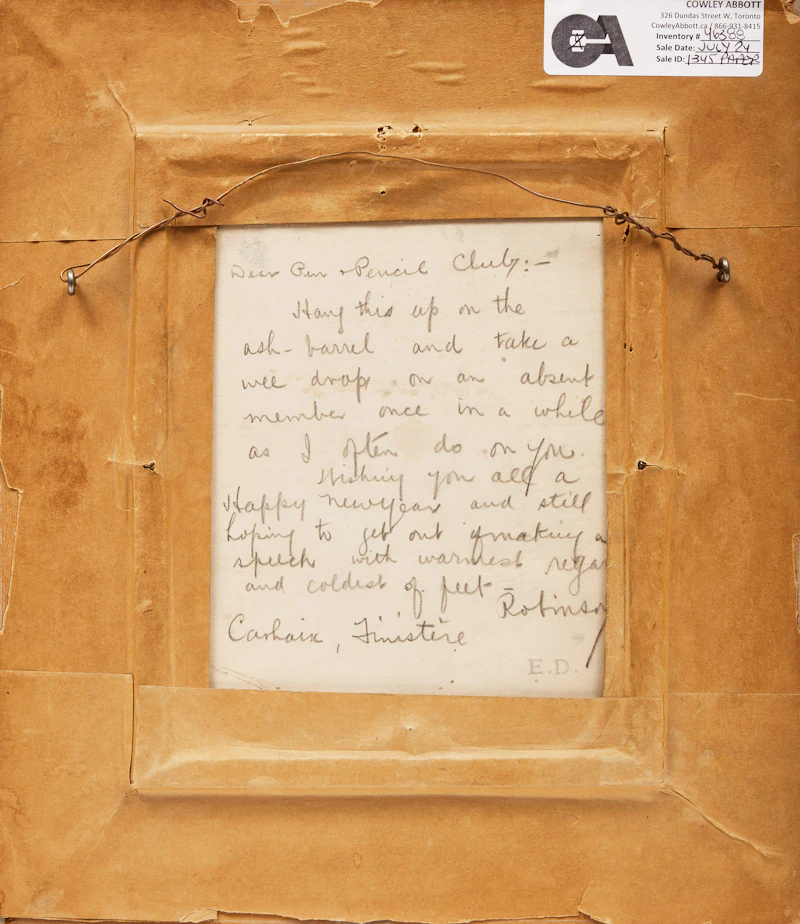 COWLEY ABBOTT
326 Dundas Street W, Toronto
CowleyAbbott.ca / 866-931-8415
Inventory # 46388
Sale Date: JULY 24
Sale ID: 1345 PAPER
CA
Dear Pen & Pencil Club:-
Hang this up on the
ash-barrel and take a
wee drop on an absent
member once in a while
as I often do on you.
Wishing you all a
Happy New Year and still
hoping to get out of making a
speech with warmest regar
and coldest of feet -
Robinson
Carhaix, Finistère
E.D.